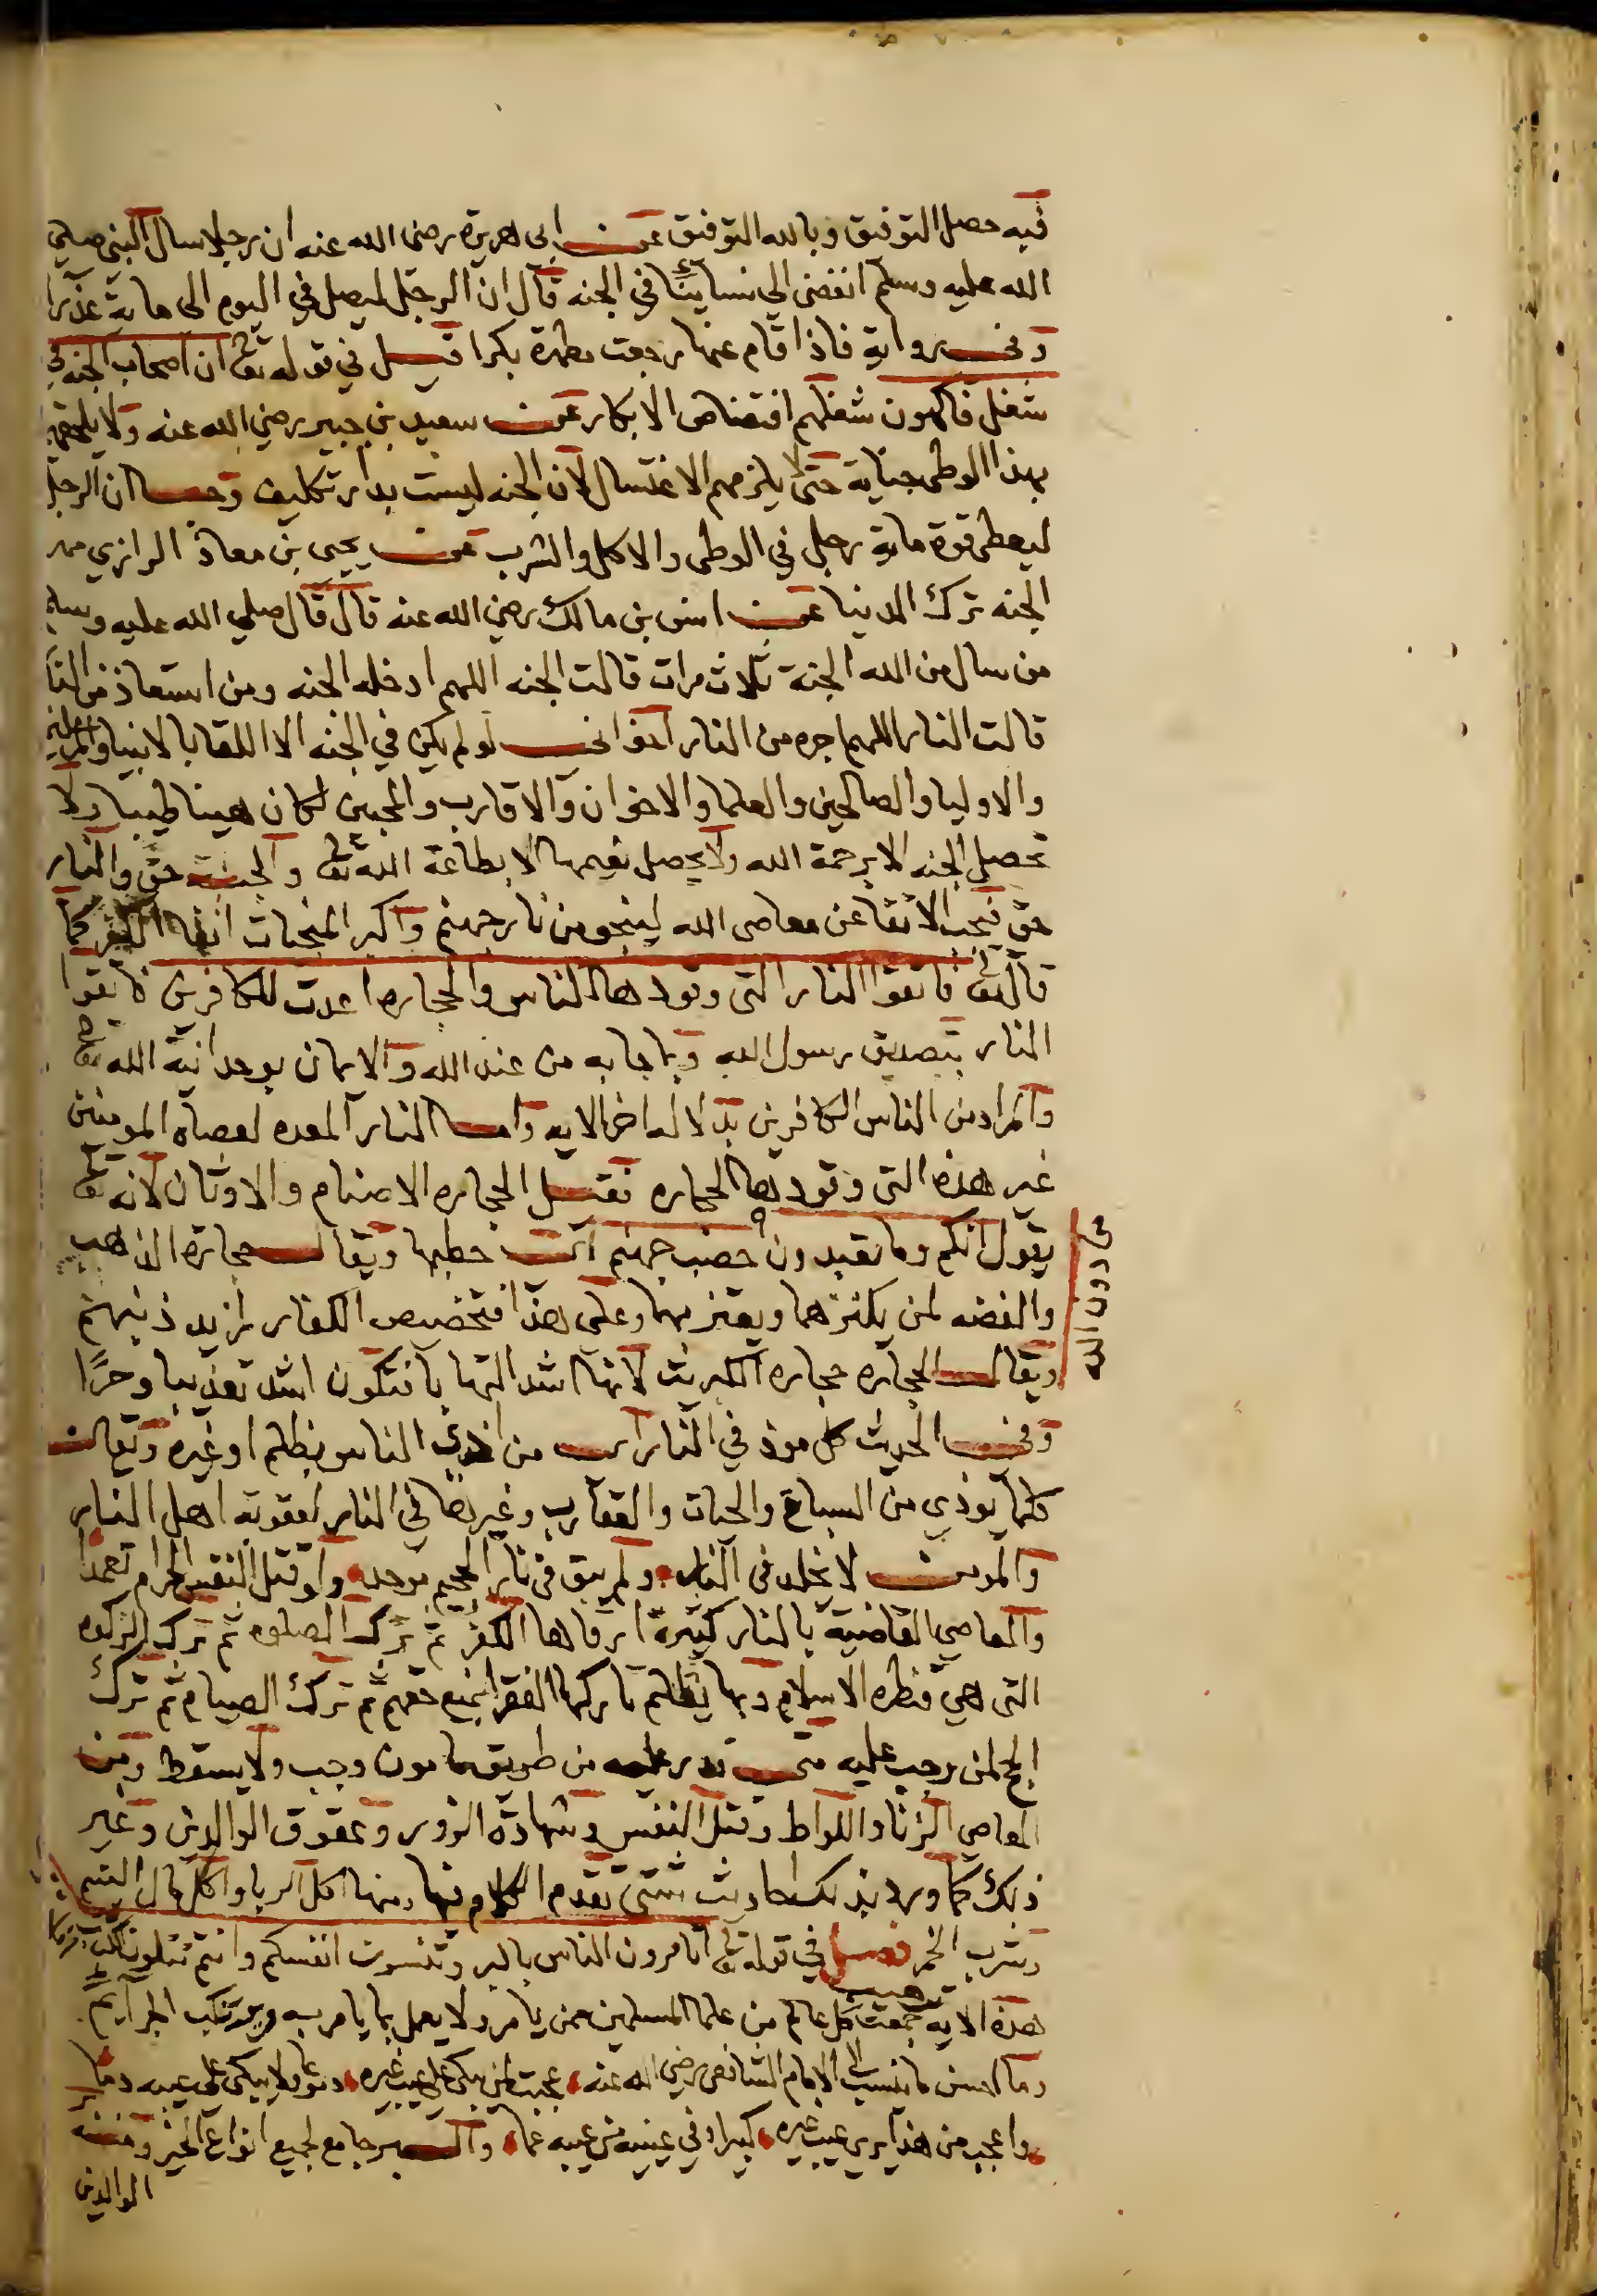 فيه حصل التوفيق وبالله التوفيق عن ابى هريرة رضى الله عنه ان رجلا سال النبى صلي
الله عليه وسلم انفضى الى نسائنا في الجنه قال ان الرجل ليصل في اليوم الى ماية عذرا
وفى رواية فاذا قام عنها رجعت مطهرة بكرا قيل في قوله تع ان اصحاب الجنه في
شغل فاكهون شغلهم افتضاض الابكار عن سعيد بن جبير رضي الله عنه ولا يلحقهم
بهذا الوطى جنابة حتى يلزمهم الاغتسال لان الجنه ليست بدار تكليف وجا ان الرجل
ليعطى قوة ماية رجل في الوطى والاكل والشرب عن يحيى بن معاذ الرازي مهر
الجنه ترك الدنيا عن انس بن مالك رضي الله عنه قال قال صلي الله عليه وسلم
من سال من الله الجنة ثلاث مرات قالت الجنه اللهم ادخله الجنه ومن استعاذ من النار
قالت النار اللهم اجره من النار لو لم يكن في الجنه الا اللقا بالانبيا
والاوليا والصالحين والعلما والاخوان والاقارب والمحبين لكان هينا طيبا ولا
تحصل الجنه الا برحمة الله ولا يحصل نعيمها الا بطاعة الله تع والجنة حق والنار
حق فيجب الاتقا عن معاصى الله لينجو من نار جهنم واكبر المنجيات اتقا الكفر كما
قال تع فاتقوا النار التى وقودها الناس والحجاره اعدت للكافرين فاتقوا
النار بتصديق رسول الله وبما جا به من عند الله والايمان بوحدانية الله تع
والمراد من الناس الكافرين بدلالة اخر الايه واما النار المعده لعصاة المومنين
غير هذه التى وقودها الحجاره فقيل الحجاره الاصنام والاوثان لانه تع
يقول انكم وما تعبدون حصب جهنم اى حطبها ويقال حجارة الذهب
من دون الله
والفضه لمن يكنزهما ويعتز بهما وعلي هذا فتخصيص الكفار لمزيد ذنبهم
ويقال الحجاره حجاره الكبريت لانها اشد التهابا فتكون اشد تعذيبا وحرًا
وفى الحديث كل موذ في النار اى من اذى الناس بظلم او غيره ويقال
كلما يوذي من السباع والحيات والعقارب وغيرها في النار لعقوبة اهل النار
والمومن لا يخلد فى النار ولم يبق فى نار الجحيم موحد ولو قتل النفس الحرام تعمدا
والمعاصي القاضية بالنار كثيرة ارقاها الكفر ثم ترك الصلوه ثم ترك الزكوه
التى هي قنطره الاسلام وبها يظلم تاركها الفقرا بمنع حقهم ثم ترك الصيام ثم ترك
الحج لمن وجب عليه متى قدر عليه من طريق مامون وجب ولا يسقط ومن
المعاصي الزنا واللواط وقتل النفس وشهادة الزور وعقوق الوالدين وغير
ذلك كما ورد بذلك احاديث شتى تقدم الكلام فيها ومنها اكل الربا واكل مال اليتيم
وشرب الخمر فصل في قوله تع اتامرون الناس بالبر وتنسون انفسكم وانتم تتلون الكتاب
ترهيب
هذه الاية جمعت كل عالم من علما المسلمين ممن يامر ولا يعمل بما يامر به ويرتكب الجرايم
وما احسن ما ينسب الى الامام الشافعى رضي الله عنه عجبت لمن يبكى على عيب غيره دموعا ولا يبكى على عيبه دما
واعجب من هذا يرى عيب غيره كبيرا وفي عينيه من عيبه عما والبر جامع لجميع انواع الخير ومنه
الوالدين